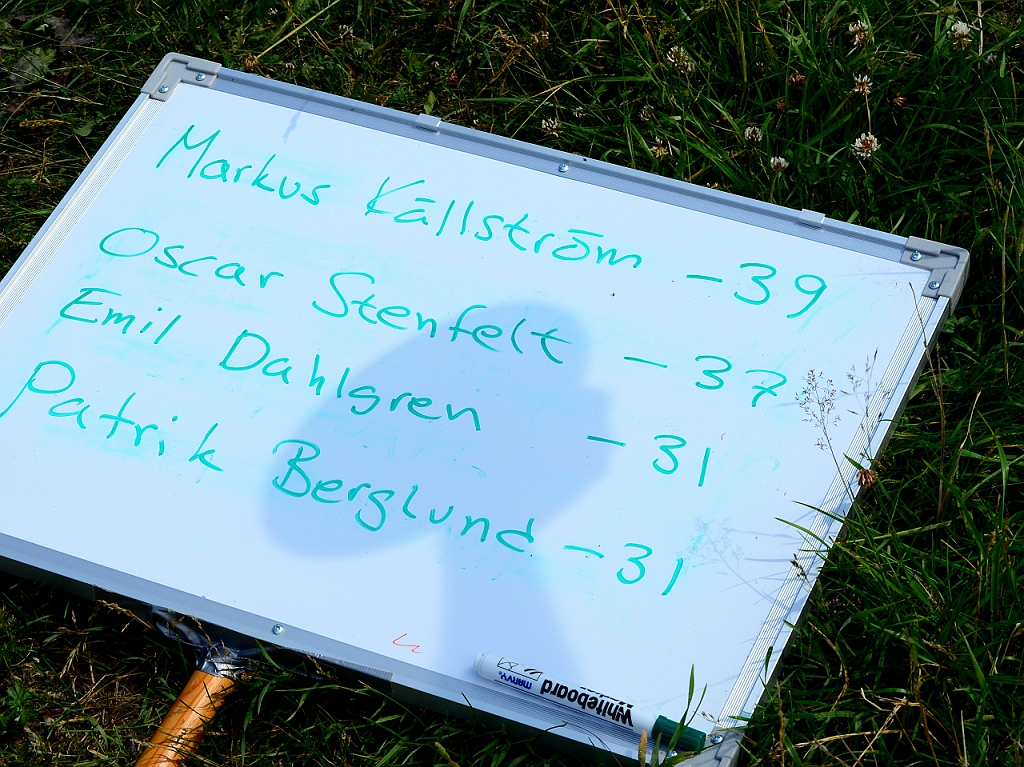 Markus Källström - 39
Oscar Stenfelt - 37
Emil Dahlgren - 31
Patrik Berglund - 31
Whiteboard
manvy.